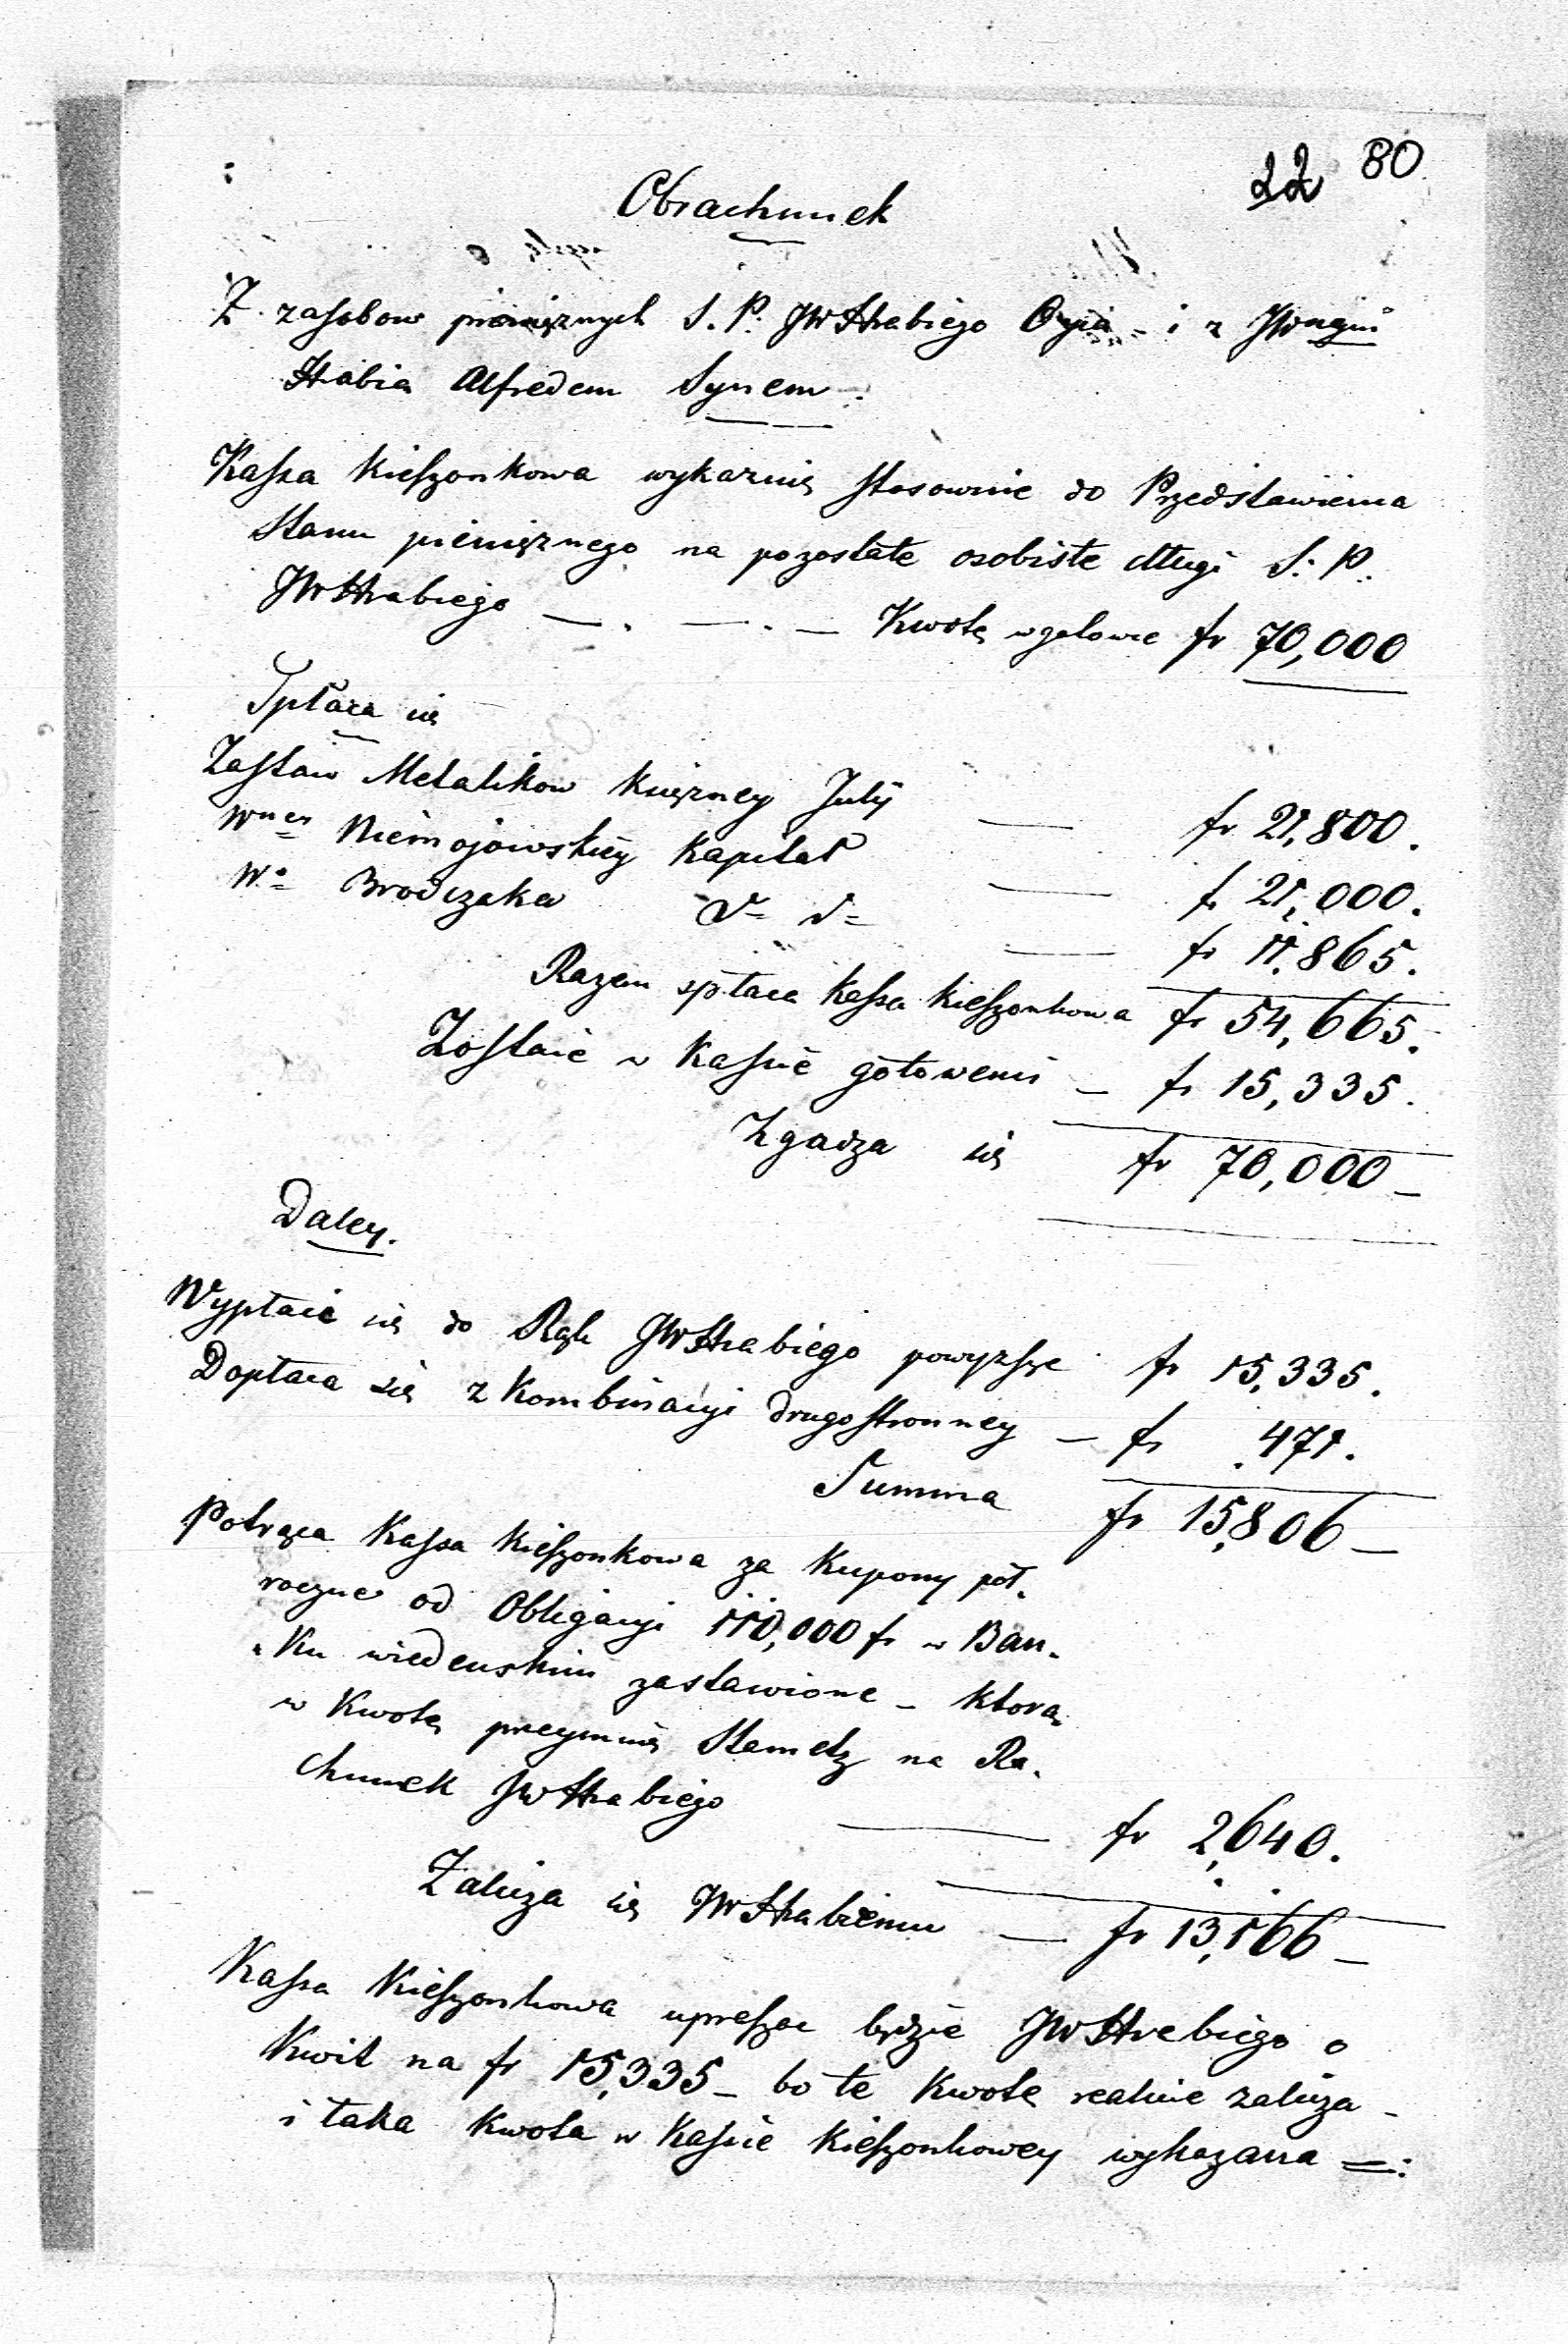 22 80
Obrachunek
Z zasobow pieniężnych S. P. JWHrabiego Oyca - i z JWnym
Hrabią Alfredem Synem.
Kassa Kieszonkowa wykazuie stosownie do Przedstawienia
Stanu pieniężnego na pozostałe osobiste długi S: P:
JWHrabiego — . — . — Kwotę w gotowce fr 70,000
Spłaca się
Zastaw Metalikow Księżney Julij — fr 21,800.
Wney Niemojowskiey Kapitał — fr 21,000.
Wo Brodczaka do do — fr 11,865.
Razem spłaca Kassa Kieszonkowa fr 54,665.
Zostaie w Kassie gotowemi — fr 15,335.
Zgadza się fr 70,000 —
Daley.
Wypłaca się do Rąk JWHrabiego powyższe fr 15,335.
Dopłaca się z Kombinacyi drugostronney — fr 471.
Summa fr 15,806 —
Potrąca Kassa Kieszonkowa za Kupony pół-
roczne od Obligacyi 110,000 fr w Ban-
-ku wiedenskim zastawione — ktorą
w Kwotę przeymuie Stametz na Ra-
chunek JWHrabiego — fr 2,640.
Należa się JWHrabiemu — fr 13,166 —
Kassa Kieszonkowa upraszac będzie JWHrabiego o
Kwit na fr 15,335 — bo te Kwotę realnie zalicza —
i taka Kwota w Kassie Kieszonkowey wykazana =: